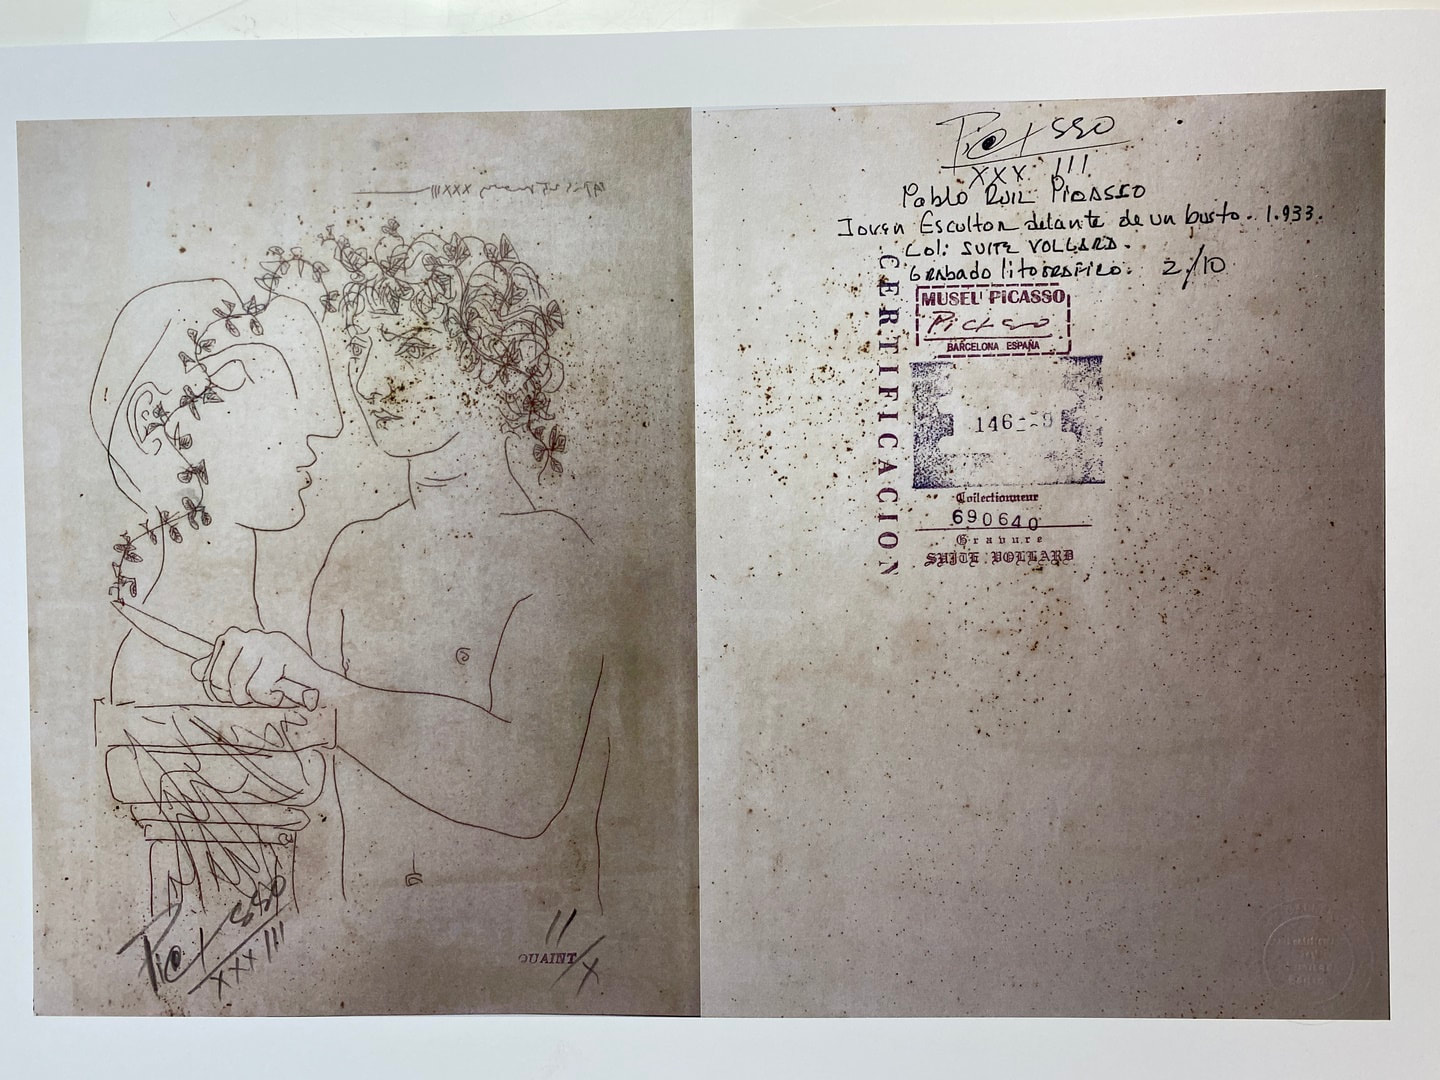 Picasso
XXXIII
II/X
QUAINT
Picasso
XXXIII
Pablo Ruiz Picasso
Joven Escultor delante de un busto. 1.933.
Col: SUITE VOLLARD.
Grabado litografico. 2/10
CERTIFICACION
MUSEU PICASSO
Picasso
BARCELONA ESPAÑA
Collectionneur
690640
Gravure
SUITE VOLLARD